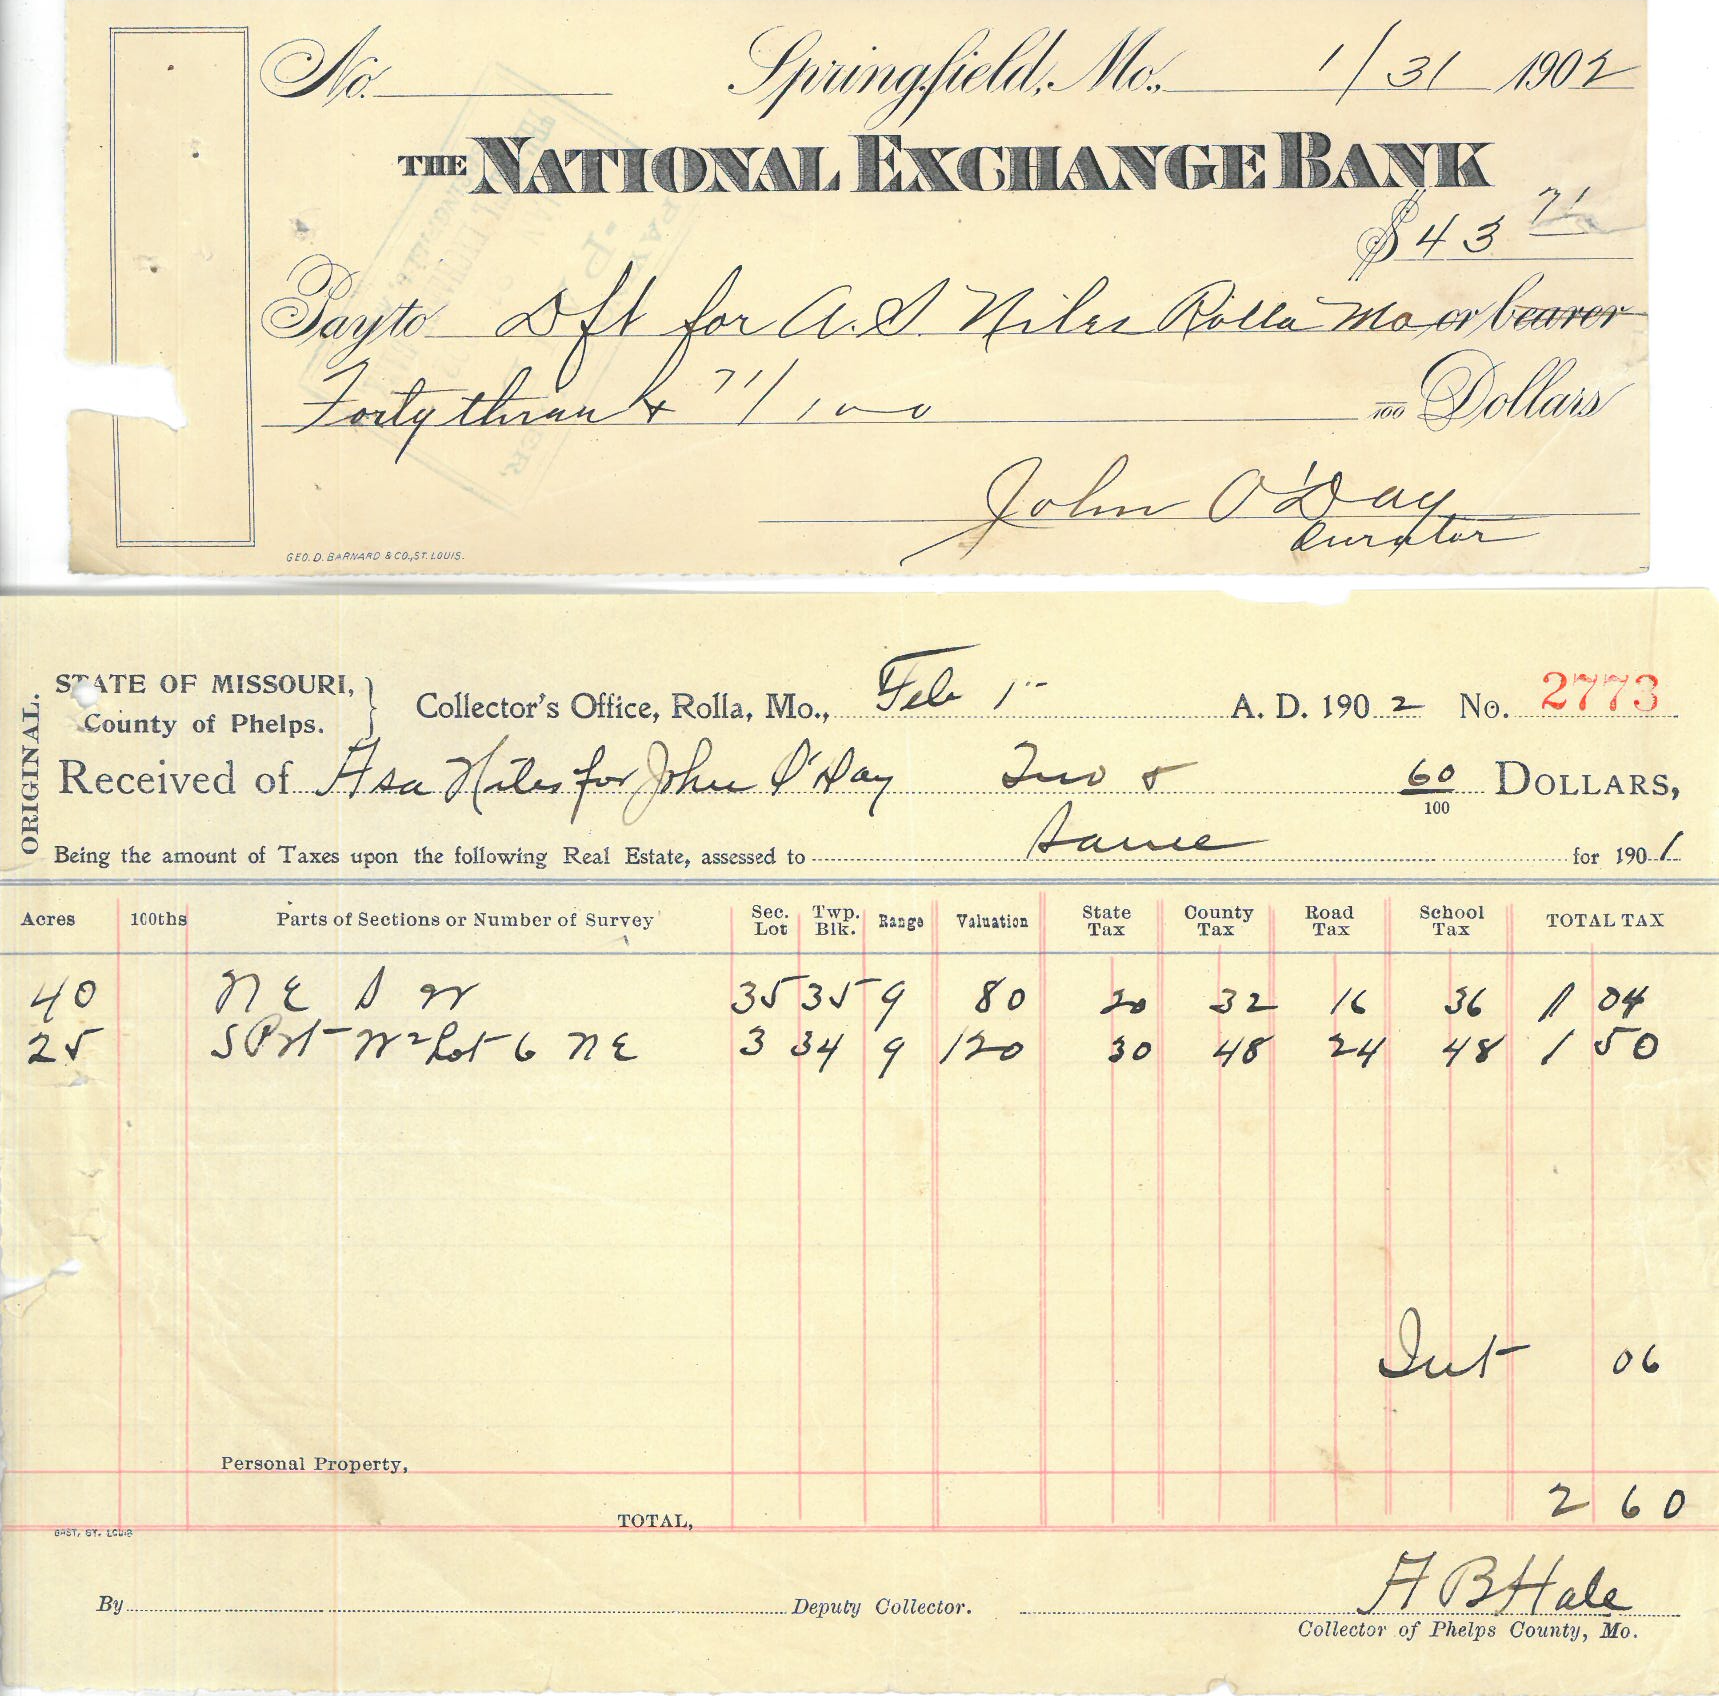 No. Springfield, Mo., 1/31 1902
THE NATIONAL EXCHANGE BANK
$43 71
Pay to Dft for A. S. Niles Rolla Mo or bearer
Forty three & 71/100 100 Dollars
John O'Day
Curator
GEO. D. BARNARD & CO., ST. LOUIS.
ORIGINAL.
STATE OF MISSOURI,
County of Phelps.
Collector's Office, Rolla, Mo., Feb 1 A. D. 1902 No. 2773
Received of Asa Niles for John O'Day Two & 60/100 DOLLARS,
Being the amount of Taxes upon the following Real Estate, assessed to Same for 1901
Acres 100ths Parts of Sections or Number of Survey Sec. Lot Twp. Blk. Range Valuation State Tax County Tax Road Tax School Tax TOTAL TAX
40 NE SW 35 35 9 80 20 32 16 36 1 04
25 S Prt W2 Lot 6 NE 3 34 9 120 30 48 24 48 1 50
Int 06
Personal Property,
TOTAL, 2 60
GAST, ST. LOUIS
By Deputy Collector. A B Hale
Collector of Phelps County, Mo.